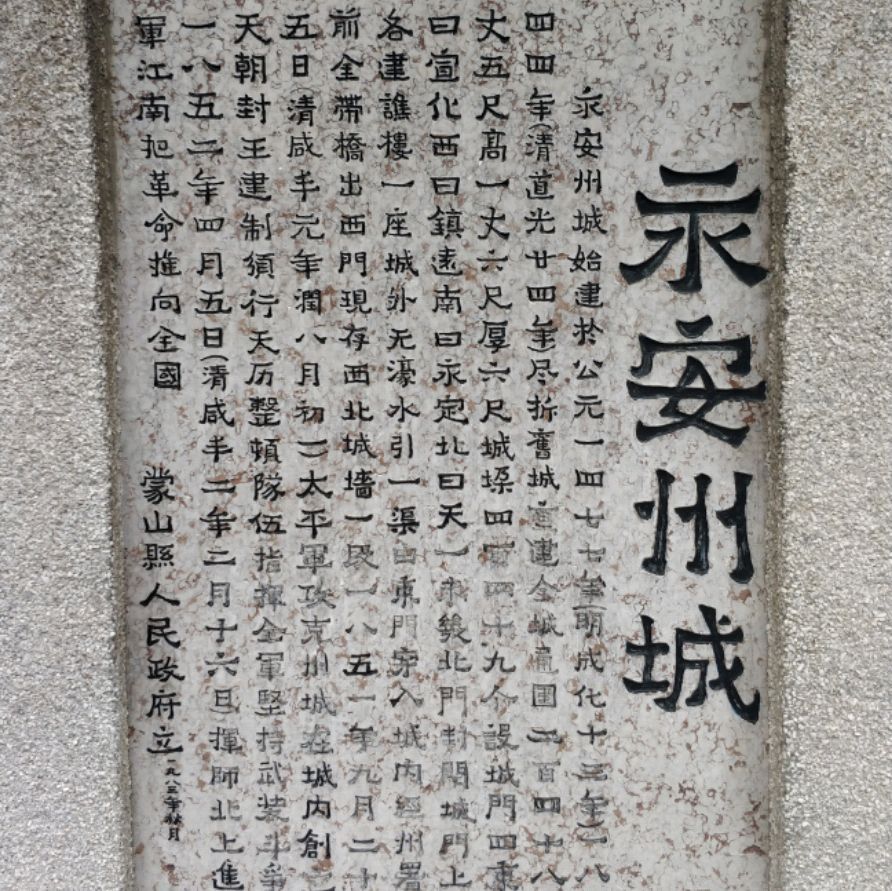 永安州城
永安州城始建於公元一四七七年(明成化十三年)一八
四四年(清道光廿四年)尽折舊城 建全城 囯二百四十八
丈五尺高一丈六尺厚六尺城垛四百四十九个設城門四東
曰宣化西曰鎮遠南曰永定北曰天一 幾北門封閉城門上
各建譙樓一座城外无濠水引一渠由東門穿入城内經州署
前全带橋出西門現存西北城墻一段一八五一年九月二十
五日(清咸丰元年潤八月初一)太平軍攻克州城在城内創
天朝封王建制頒行天历整頓隊伍指揮全軍堅持武装斗争
一八五二年四月五日(清咸丰二年二月十六日)揮師北上進
軍江南把革命推向全國
蒙山縣人民政府立
一九八三年秋月